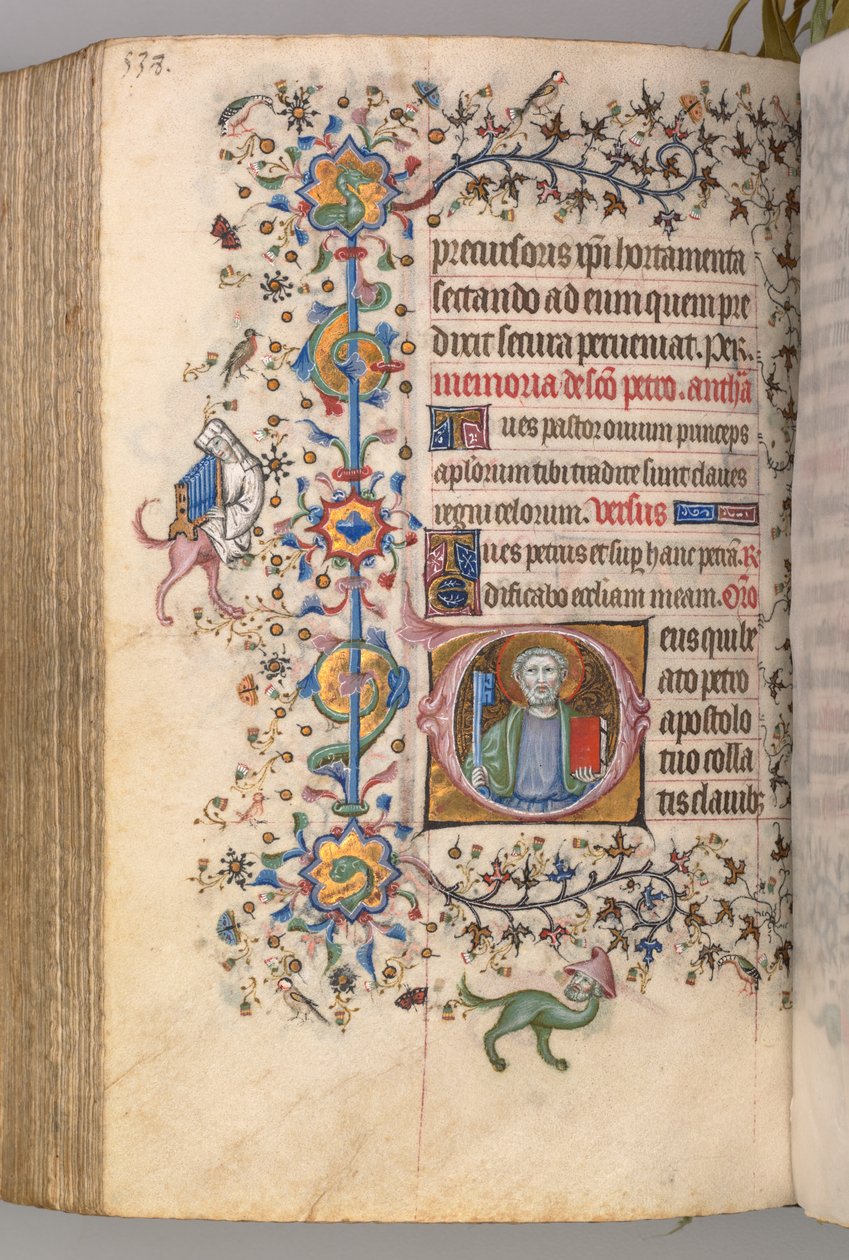 538.
precursoris xp̄i hortamenta
sectando ad eum quem pre
dixit secura perueniat. Per.
memoria de sc̄o petro. anth̄a
Tues pastor ouium princeps
apl̄orum tibi tradite sunt claues
regni celorum. versus
Tues petrus et sup̱ hanc petrā. Ṟ
Edificabo eccl̄iam meam. Or̄o
Deus qui be
ato petro
apostolo
tuo colla
tis clauibꝫ